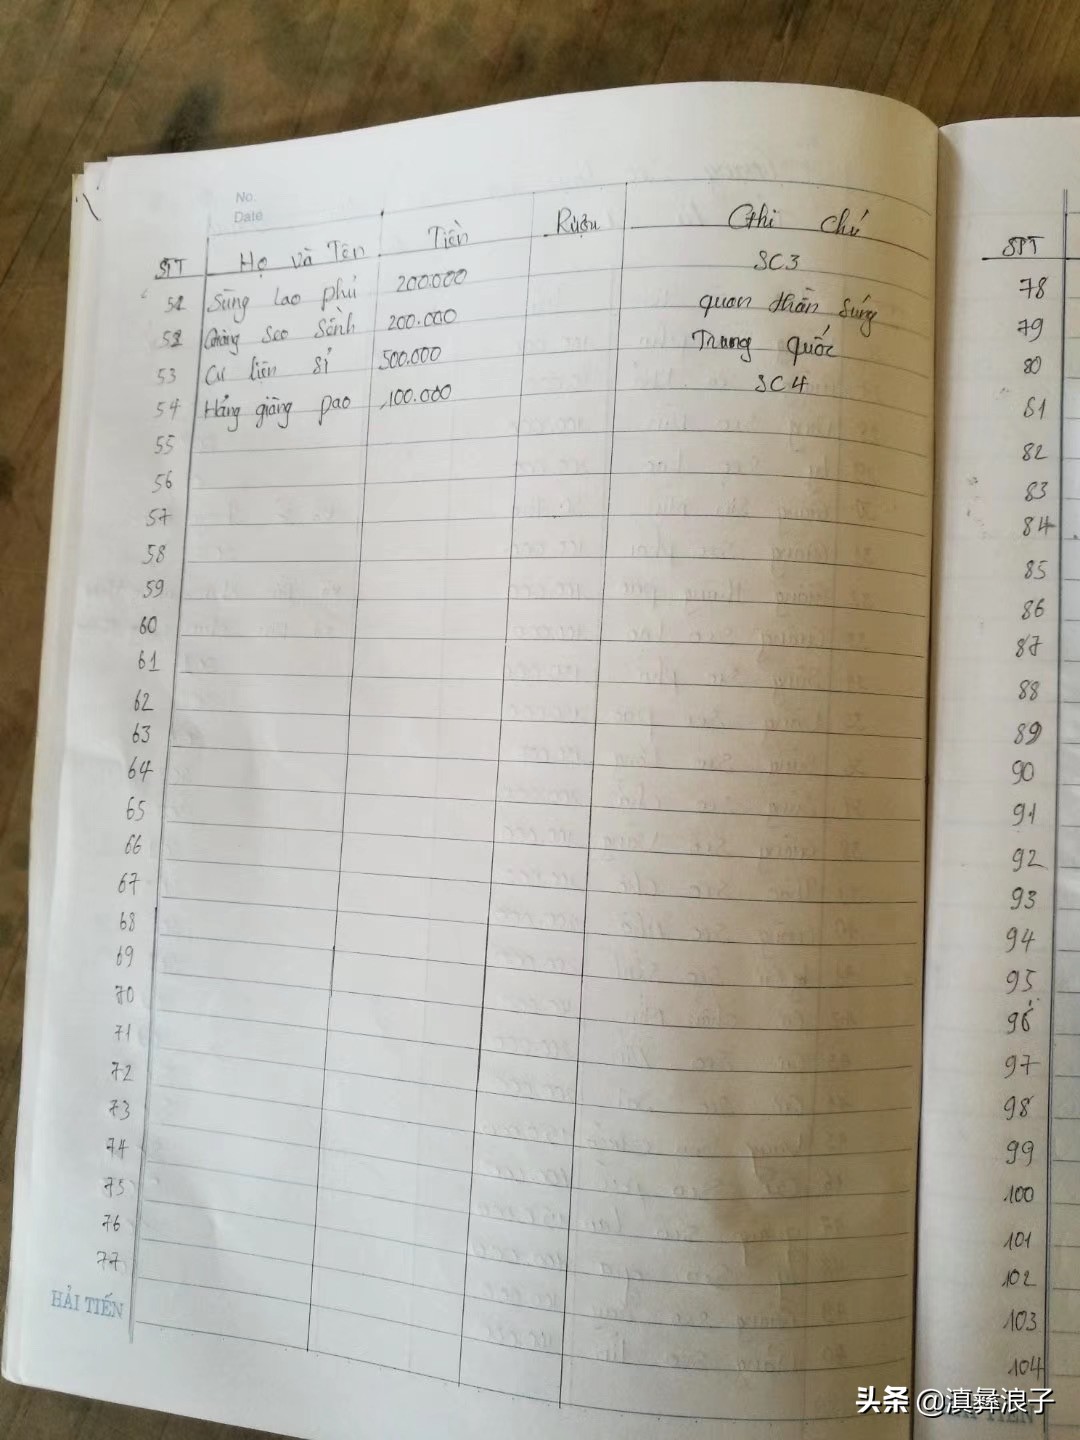 No.
Date
STT Họ và Tên Tiền Rượu Ghi chú
51 Sùng Lao phủ 200.000 SC3
52 Giàng Seo Sềnh 200.000 quan thần súng
53 Cư liên sỉ 500.000 Trung quốc
54 Hảng giàng pao 100.000 SC4
55
56
57
58
59
60
61
62
63
64
65
66
67
68
69
70
71
72
73
74
75
76
77
HẢI TIẾN
STT
78
79
80
81
82
83
84
85
86
87
88
89
90
91
92
93
94
95
96
97
98
99
100
101
102
103
104
头条 @滇彝浪子